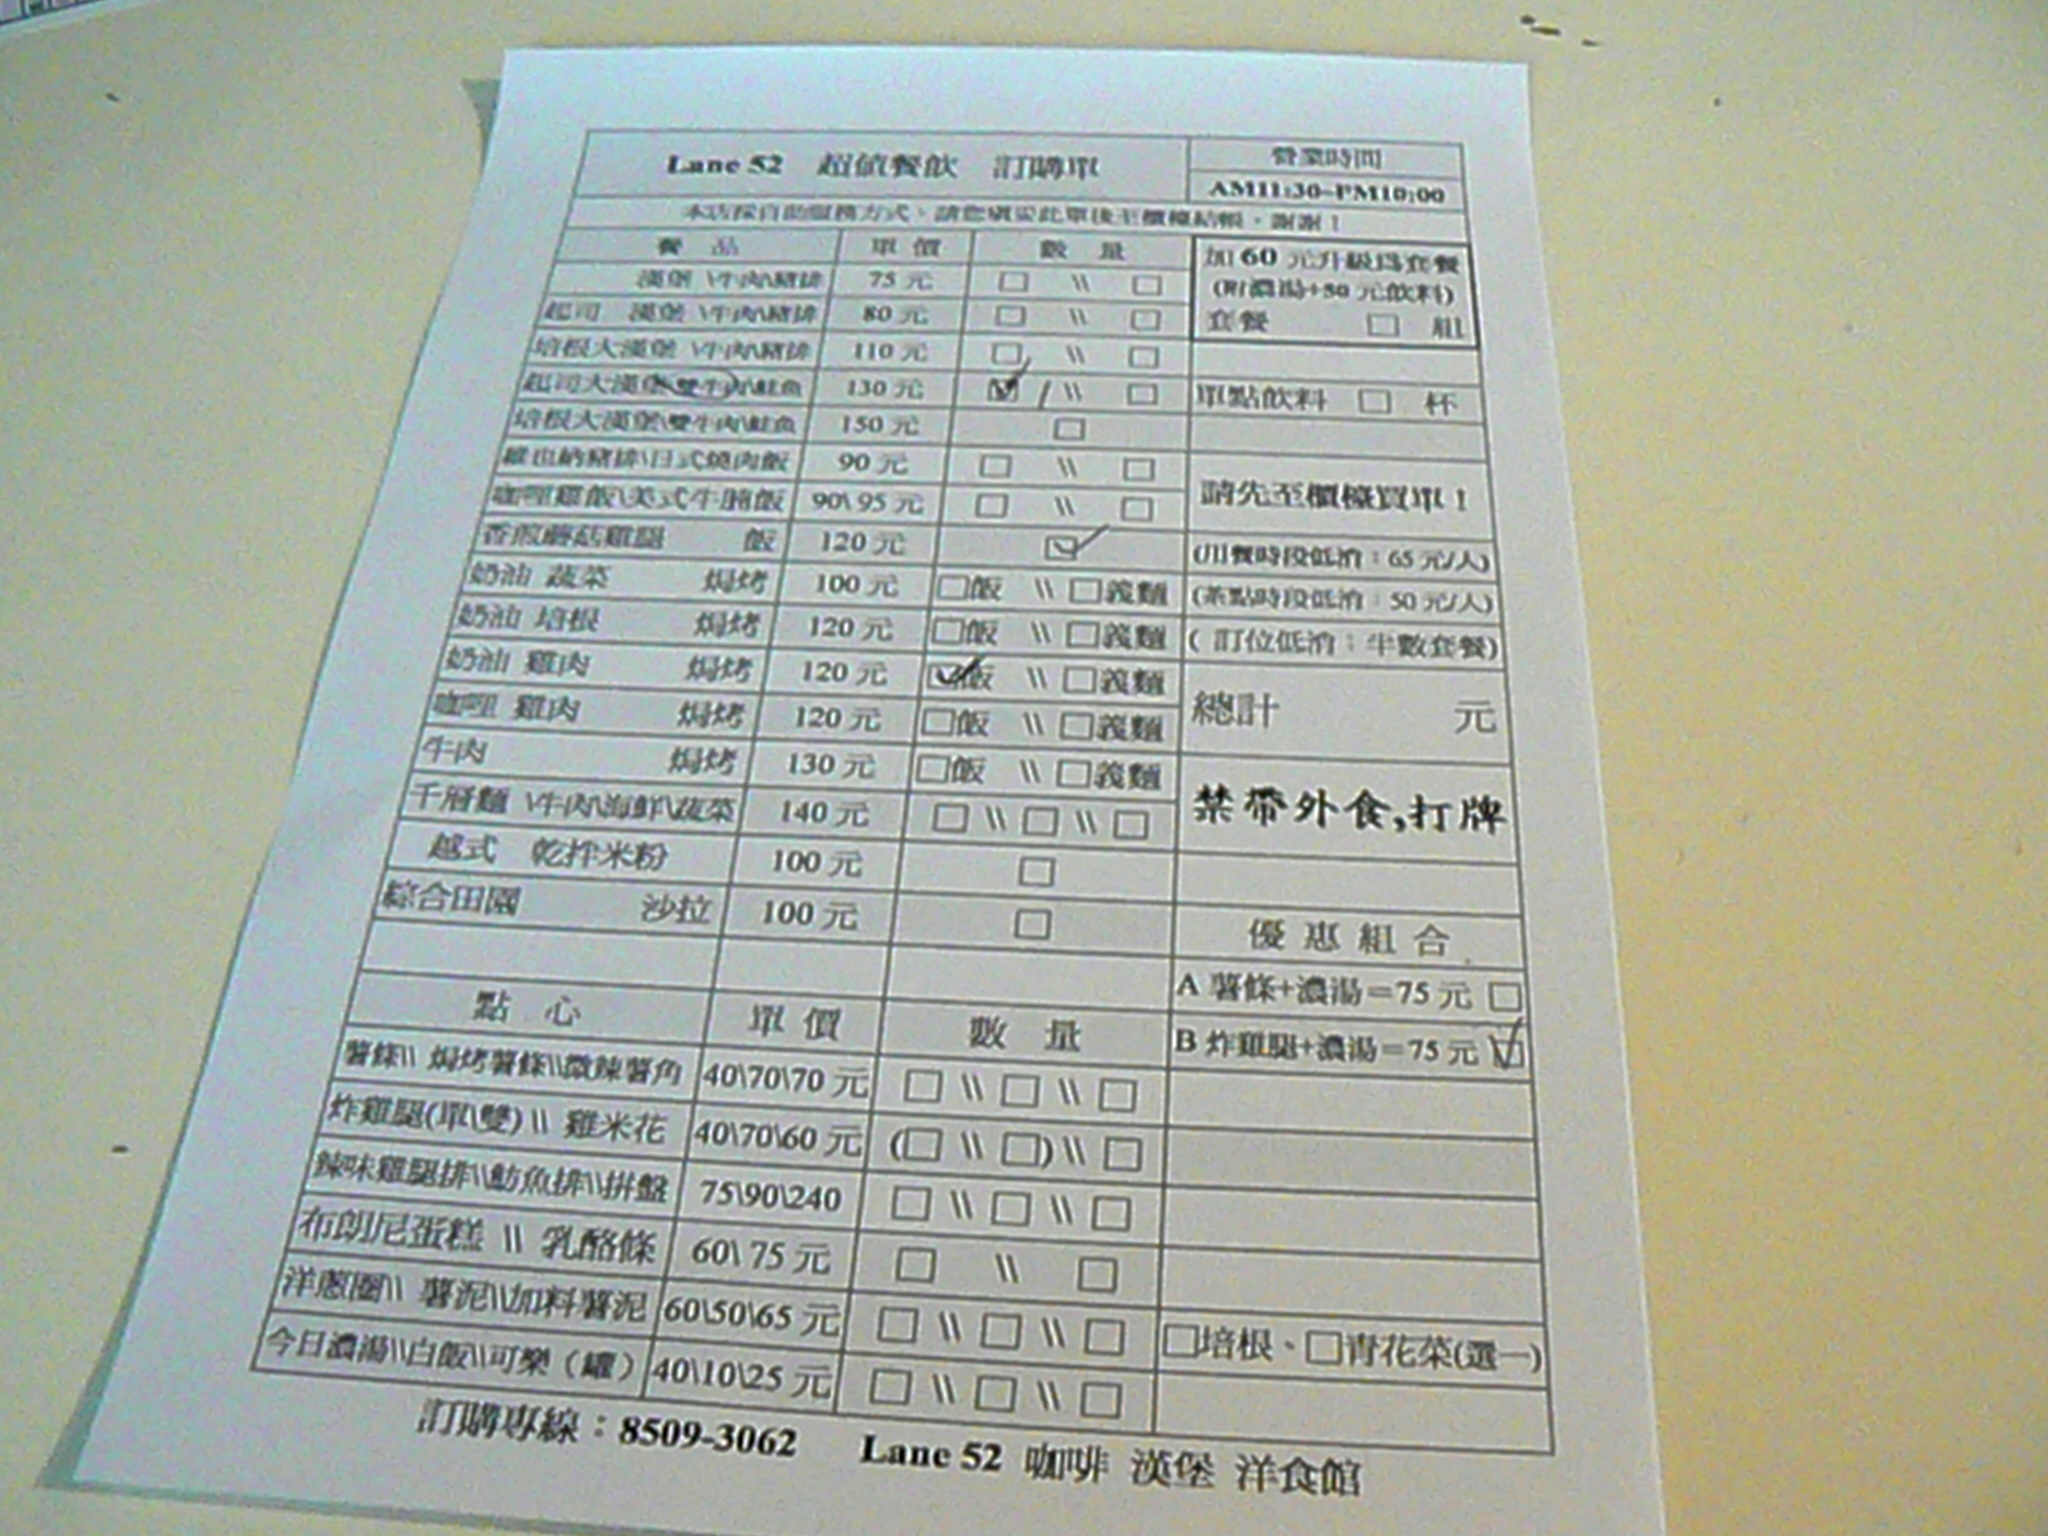 Lane 52 超值餐飲 訂購單
營業時間
AM11:30~PM10:00
本店採自助服務方式，請您填妥此單後至櫃檯結帳，謝謝！
餐 品 單 價 數 量
漢堡 \牛肉\豬排 75 元 □ \\ □
起司 漢堡 \牛肉\豬排 80 元 □ \\ □
培根大漢堡 \牛肉\豬排 110 元 □ \\ □
起司大漢堡\雙牛肉\鮭魚 130 元 ☑ / \\ □
培根大漢堡\雙牛肉\鮭魚 150 元 □
維也納豬排\日式燒肉飯 90 元 □ \\ □
咖哩雞飯\美式牛腩飯 90\ 95 元 □ \\ □
香煎蘑菇雞腿 飯 120 元 ☑
奶油 蔬菜 焗烤 100 元 □飯 \\ □義麵
奶油 培根 焗烤 120 元 □飯 \\ □義麵
奶油 雞肉 焗烤 120 元 ☑飯 \\ □義麵
咖哩 雞肉 焗烤 120 元 □飯 \\ □義麵
牛肉 焗烤 130 元 □飯 \\ □義麵
千層麵 \牛肉\海鮮\蔬菜 140 元 □ \\ □ \\ □
越式 乾拌米粉 100 元 □
綜合田園 沙拉 100 元 □
點 心 單 價 數 量
薯條\\ 焗烤薯條\\微辣薯角 40\70\70 元 □ \\ □ \\ □
炸雞腿(單\雙) \\ 雞米花 40\70\60 元 (□ \\ □) \\ □
辣味雞腿排\\魴魚排\\拼盤 75\90\240 □ \\ □ \\ □
布朗尼蛋糕 \\ 乳酪條 60\ 75 元 □ \\ □
洋蔥圈\\ 薯泥\\加料薯泥 60\50\65 元 □ \\ □ \\ □
今日濃湯\\白飯\\可樂（罐） 40\10\25 元 □ \\ □ \\ □
加 60 元升級為套餐
(附濃湯+50 元飲料)
套餐 □ 組
單點飲料 □ 杯
請先至櫃檯買單！
(用餐時段低消：65 元/人)
(茶點時段低消：50 元/人)
( 訂位低消：半數套餐)
總計 元
禁帶外食,打牌
優 惠 組 合
A 薯條+濃湯＝75 元 □
B 炸雞腿+濃湯＝75 元 ☑
□培根、□青花菜(選一)
訂購專線：8509-3062 Lane 52 咖啡 漢堡 洋食館